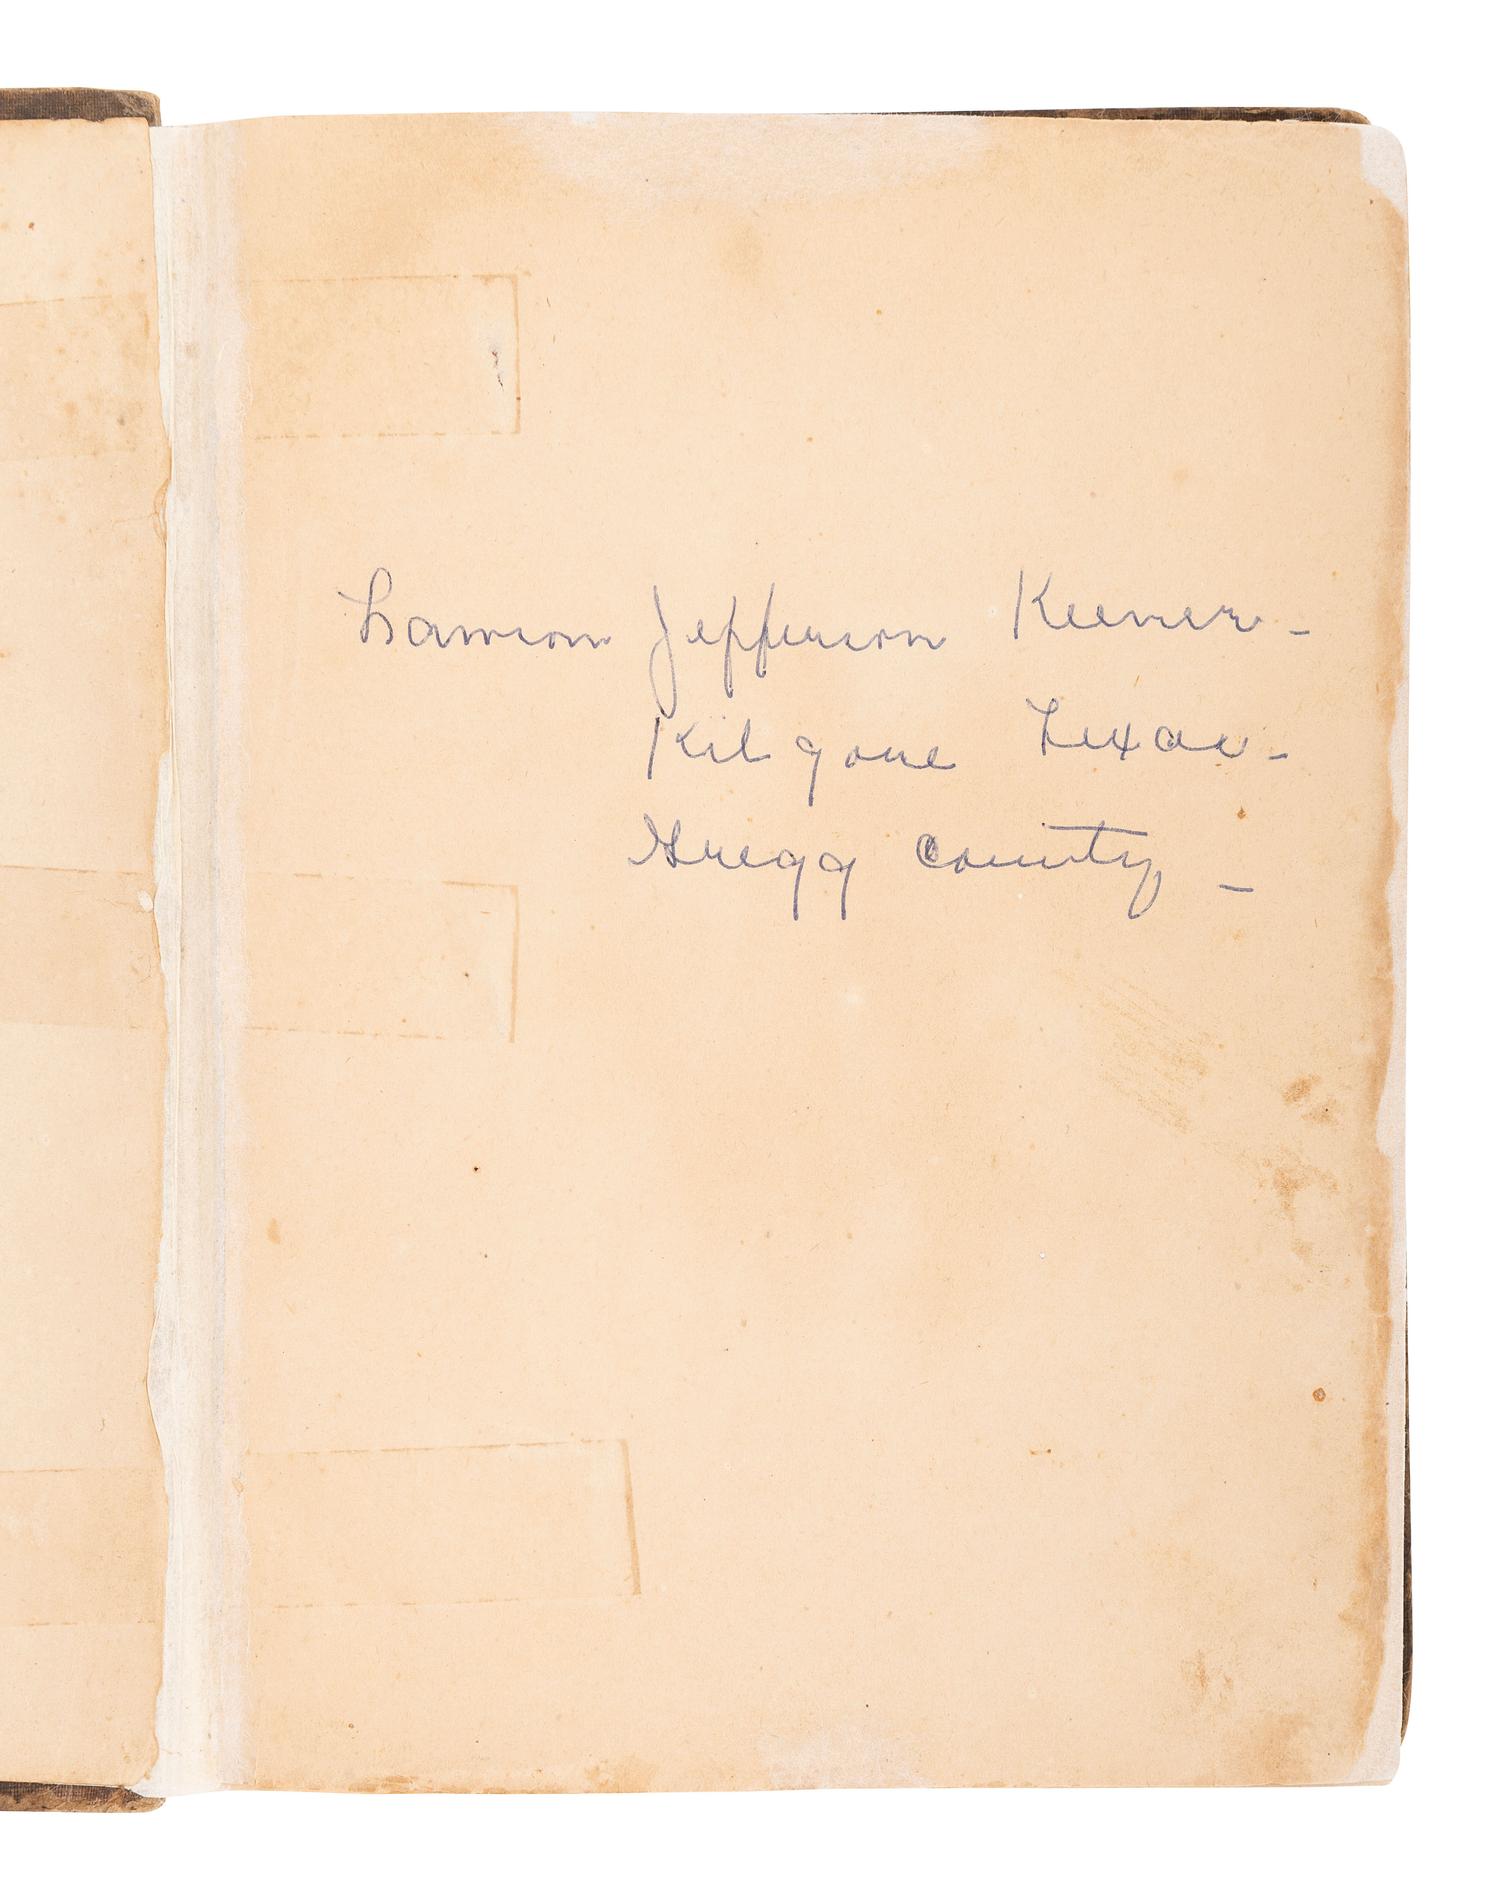 Lawson Jefferson Keener -
Kilgore Texas -
Gregg County -